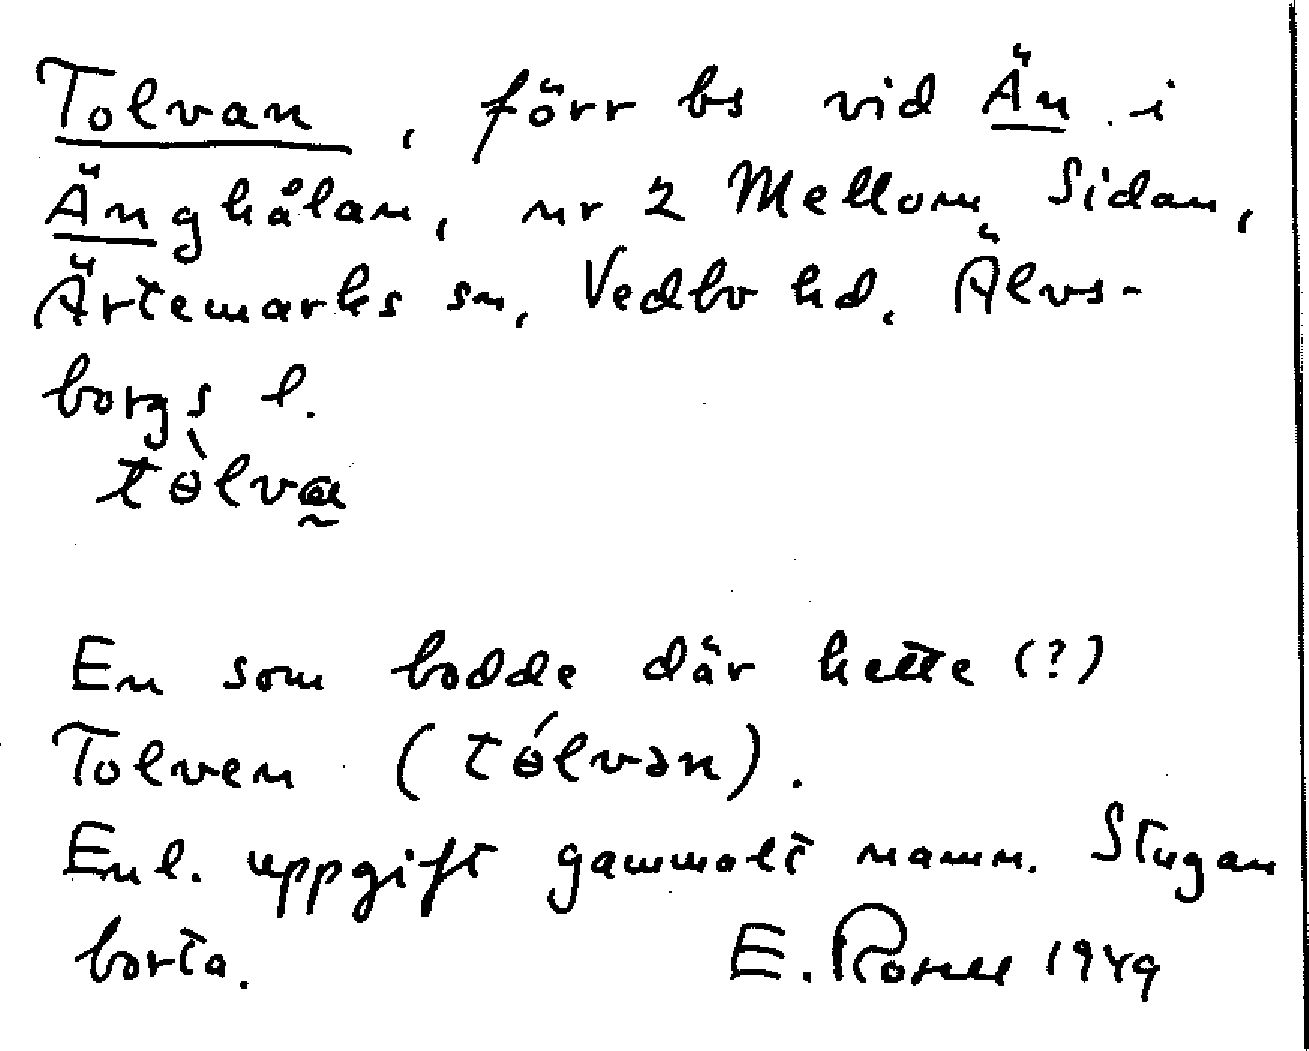 Tolvan, förr bs vid Än i
Änghålan, nr 2 Mellom Sidan,
Ärtemarks sn, Vedbo hd, Älvs-
borgs l.
tɵ̀lva̰
En som bodde där hette (?)
Tolven (tɵ́lvən).
Enl. uppgift gammalt namn. Stugan
borta. E. 1949